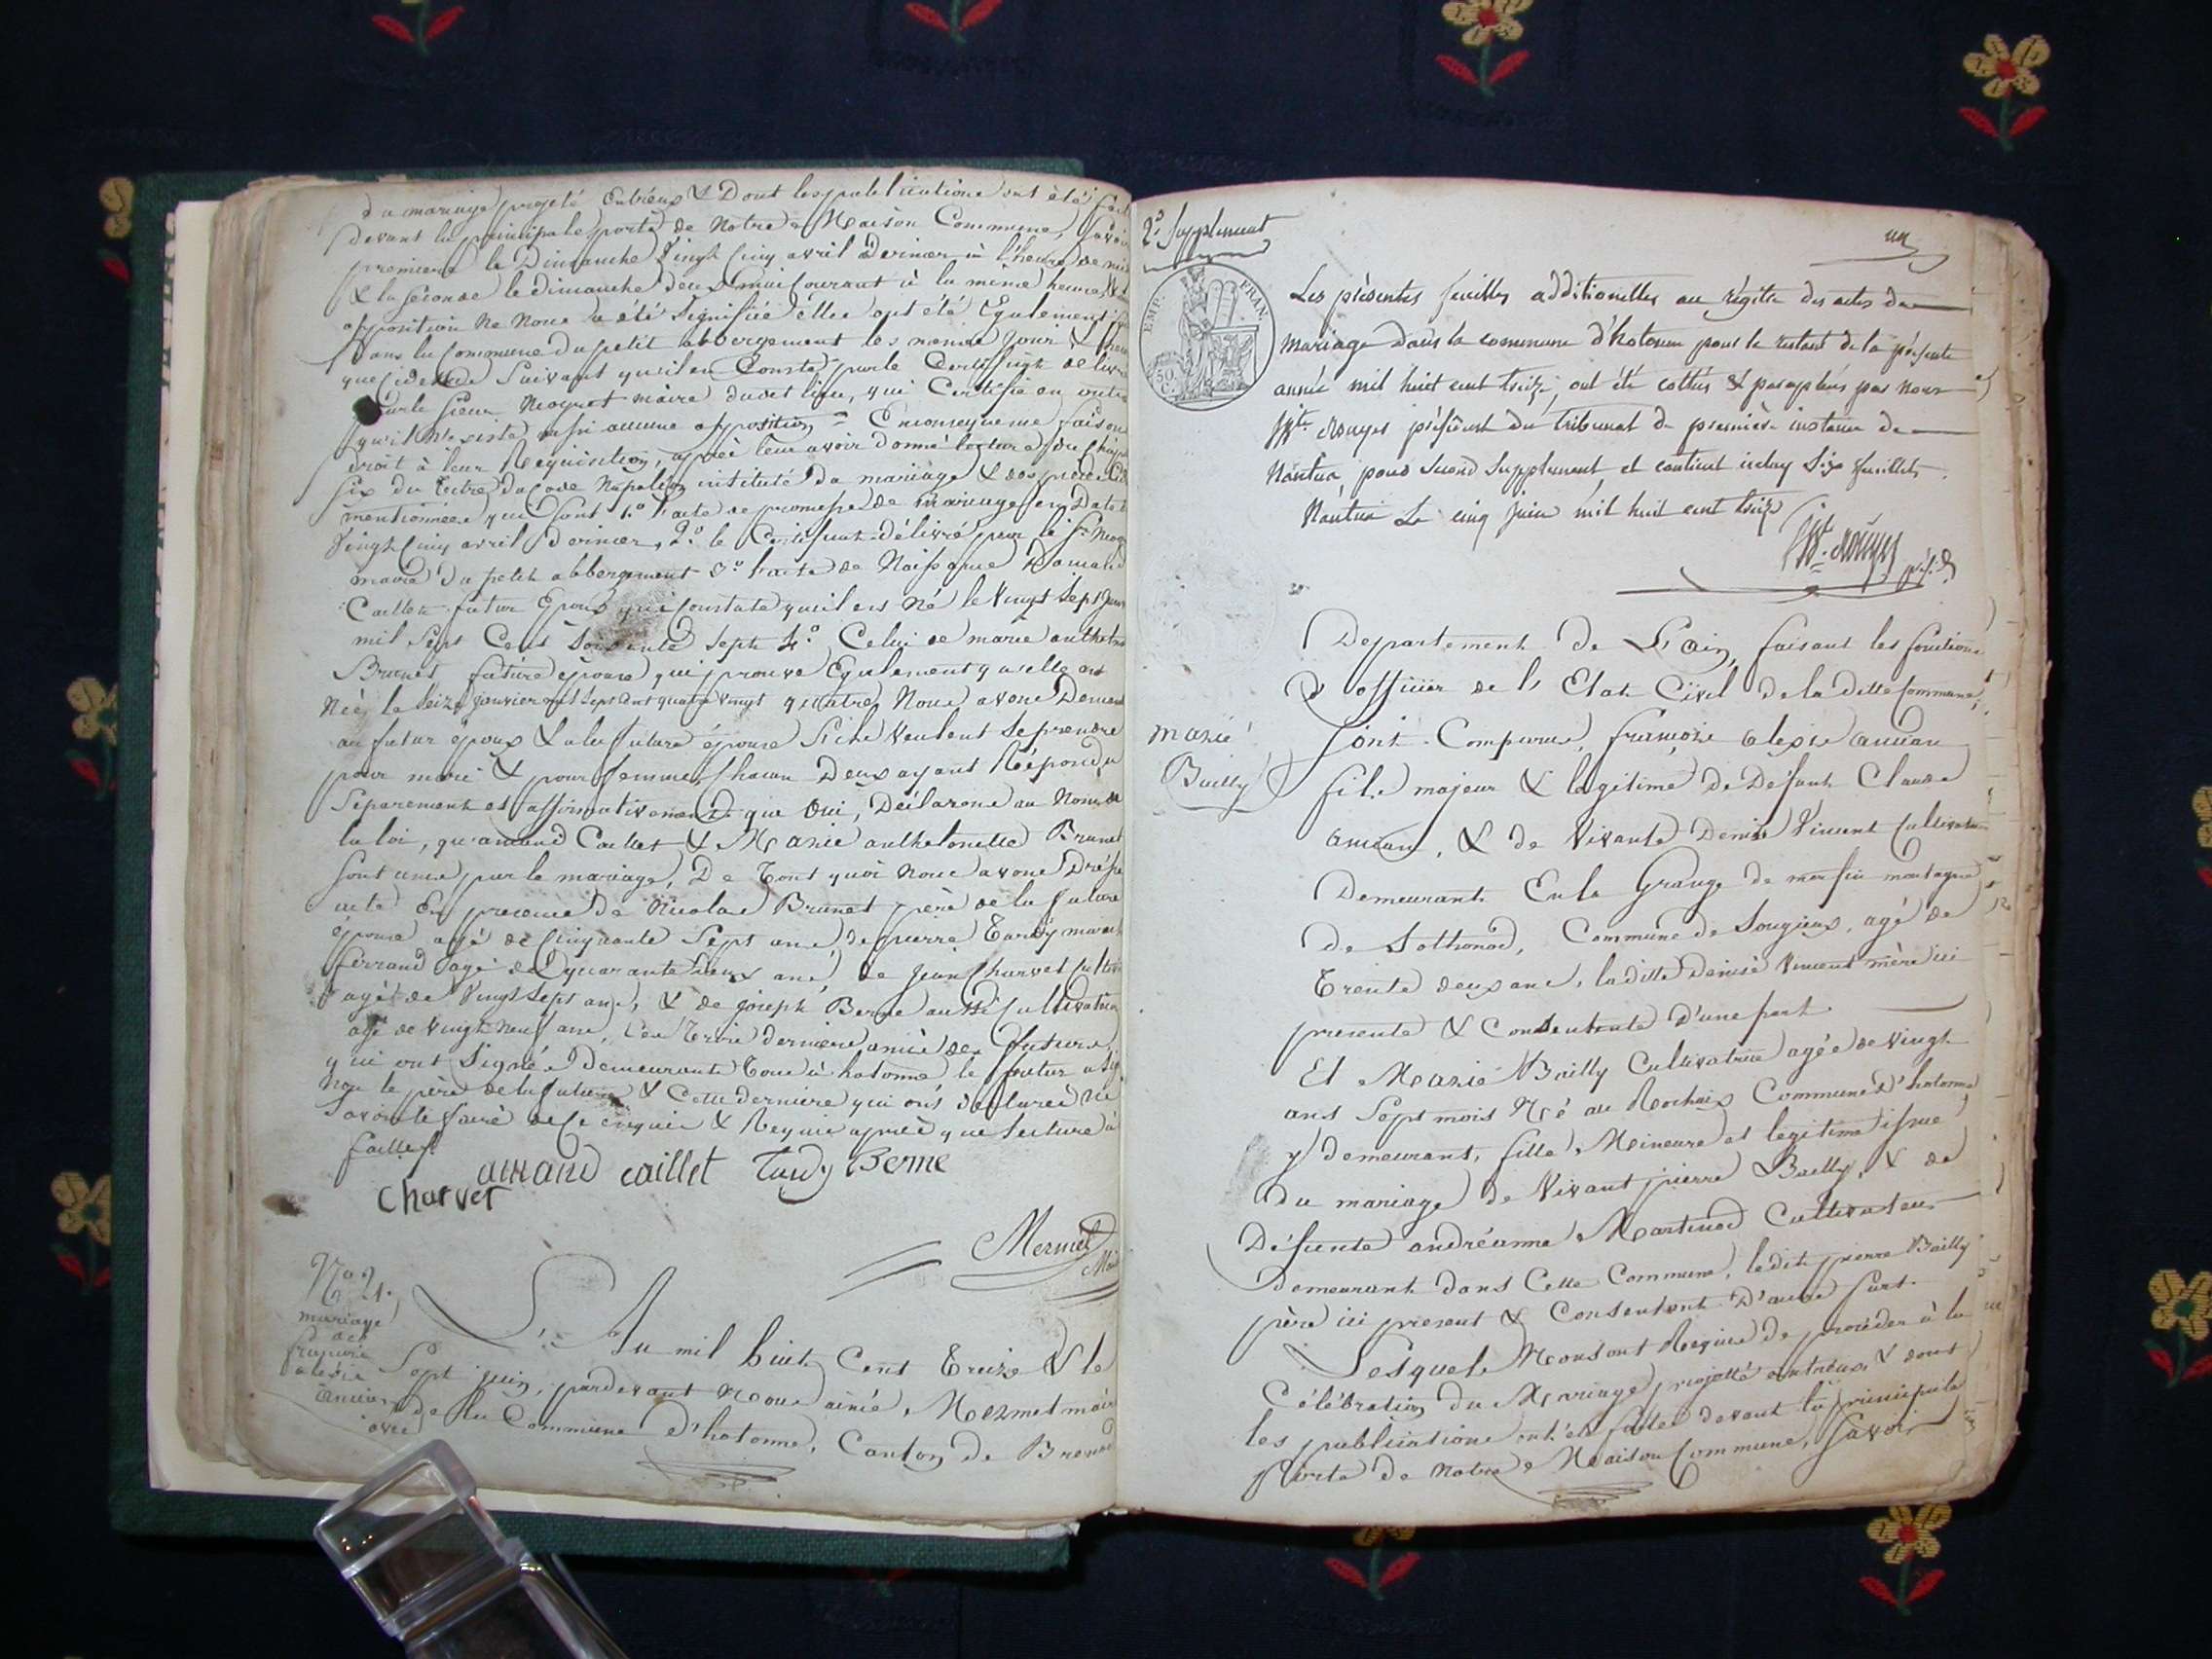 du mariage projeté Entrieux & Dont les publications ont été fait
devant la principale porte de Notre Maison Commune, Savoir
premiere le Dimanche Vingt Cinq avril Dernier à l'heure de mid
& la seconde le dimanche deux mai Courant à la même heure,
opposition Ne Nous a été Signifiée elles ont été Egalement
Dans la Commune du petit abbergement les memes Jours &
que Suivant qu'il en Conste par le Certifficat delivré
par le sieur Moynet maire dudit lieu, qui Certifie en outre
qu'il N'existe aussi aucune opposition = Enconsequence faisons
droit à leur Requisition, après leur avoir donné lecture du Chap
Six du titre du Code Napoleon intitulé Du mariage & des pieces
mentionnées qui Sont 1.º l'acte de promesse de mariage en Date
Vingt Cinq avril Dernier, 2.º le Certificat délivré par le Sr
maire Du petit abbergement 3.º l'acte de Naissance Damand
Caillet futur Epoux qui Constate qu'il est Né le Vingt Sept
mil Sept Cent Soixante Sept 4.º Celui de marie anthelm
Brunet future épouse qui prouve Egalement quelle est
Née le Seize janvier mil Sept Cent quatre Vingt quatre, Nous avons Deman
au futur époux & à la future épouse S'ils Veulent Se prendre
pour mari & pour femme, Chacun Deux ayant Répondu
Séparement et affirmativement que Oui, Déclarons au Nom de
la loi, qu'amand Caillet & Marie anthelmette Brunet
Sont unis par le mariage, De Tout quoi Nous avons Dressé
acte En presence de Nicolas Brunet père de la future
épouse agé de Cinquante Sept ans, de pierre Tardy marech
ferrand agé de quarante Deux ans, de Jean Charvet Cultiv
agé de Vingt Sept ans, & de joseph Berne aussi Cultivateur
agé de Vingt Neuf ans, Ces Trois derniers amis des futurs
qui ont Signés Demeurants Tous à hotonne, le futur a Sig
Non le père de la future & Cette derniere qui ont déclarés Ne
Savoir le faire de Ce enquis & Requis après que lecture à
faittes
amand caillet Tardy Berne
Charvet
Mermet
Maire
No. 21.
mariage
de
françois
alexis
ancian
avec
L'An mil huit Cent Treize & le
Sept juin, pardevant Nous aimé Mermet maire
de la Commune d'hotonne, Canton de Brenod
2.º Supplement
un
EMP. FRAN.
50
Les présentes feuilles additionelles au régistre des actes de
mariage dans la commune d'hotonne pour le restant de la présente
année mil huit cent treize, ont été cottées & paraphées par nous
président du tribunal de première instance de
Nantua, pour Second Supplement et contient icelui Six feuillets.
Nantua Le cinq Juin mil huit cent treize
Departement de L'Ain, faisant les fonctions
D'officier de l'Etat Civil de la ditte Commune,
Sont Comparus, françois alexis ancian
fils majeur & légitime de Défunt Claude
ancian, & de Vivante Denise Vincent Cultivatrice
Demeurant En la Grange de montagne
de Sothonod, Commune de Songieux, agé de
Trente deux ans, laditte Denise Vincent mère ici
presente & Consentente D'une part
marie
Bailly
Et Marie Bailly Cultivatrice agée de Vingt
ans Sept mois Né au Rochais Commune d'hotonne,
y demeurant, fille Mineure et légitime issue
du mariage de Vivant pierre Bailly, & de
Défunte andréanne Martinod Cultivateurs
Demeurant dans Cette Commune, ledit pierre Bailly
père ici present & Consentant D'autre part.
Lesquels Nous ont Requis de procéder à la
Célébration du Mariage projetté entreux & dont
les publications ont été faites devant la principale
Porte de Notre Maison Commune, Savoir